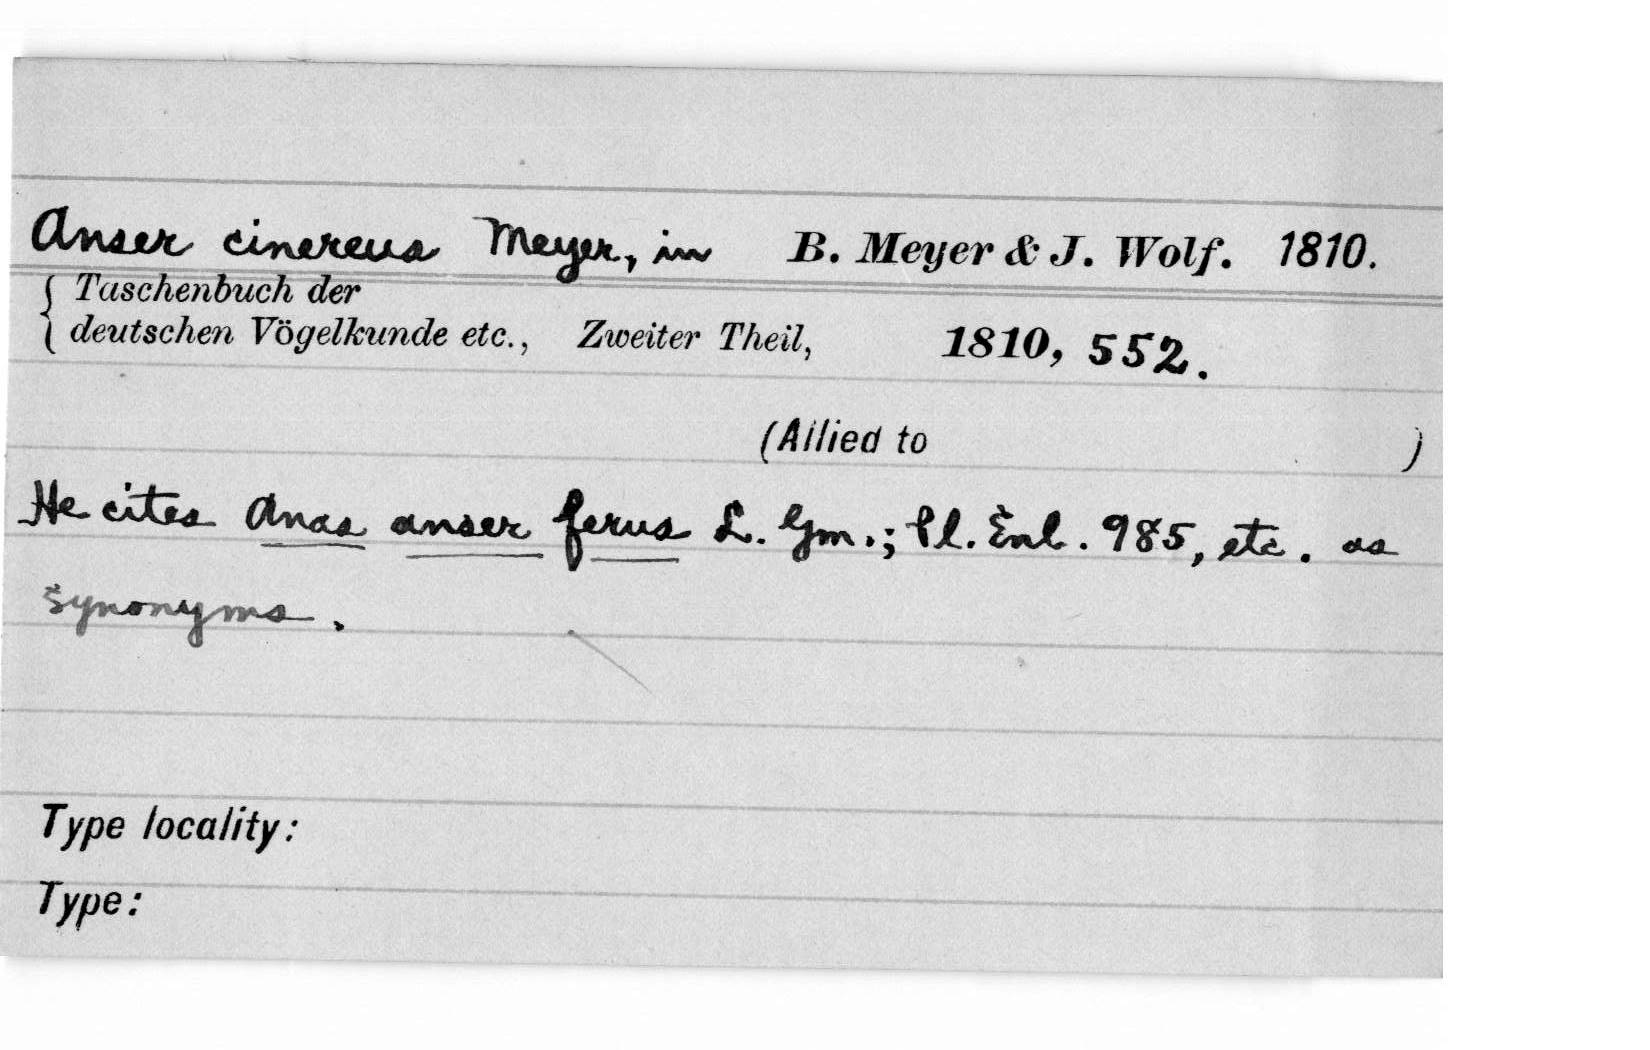 Anser cinereus Meyer, in B. Meyer & J. Wolf. 1810.
{ Taschenbuch der
deutschen Vögelkunde etc., Zweiter Theil, 1810, 552.
(Allied to )
He cites Anas anser ferus L. Gm.; Pl. Enl. 985, etc. as
synonyms.
Type locality:
Type: